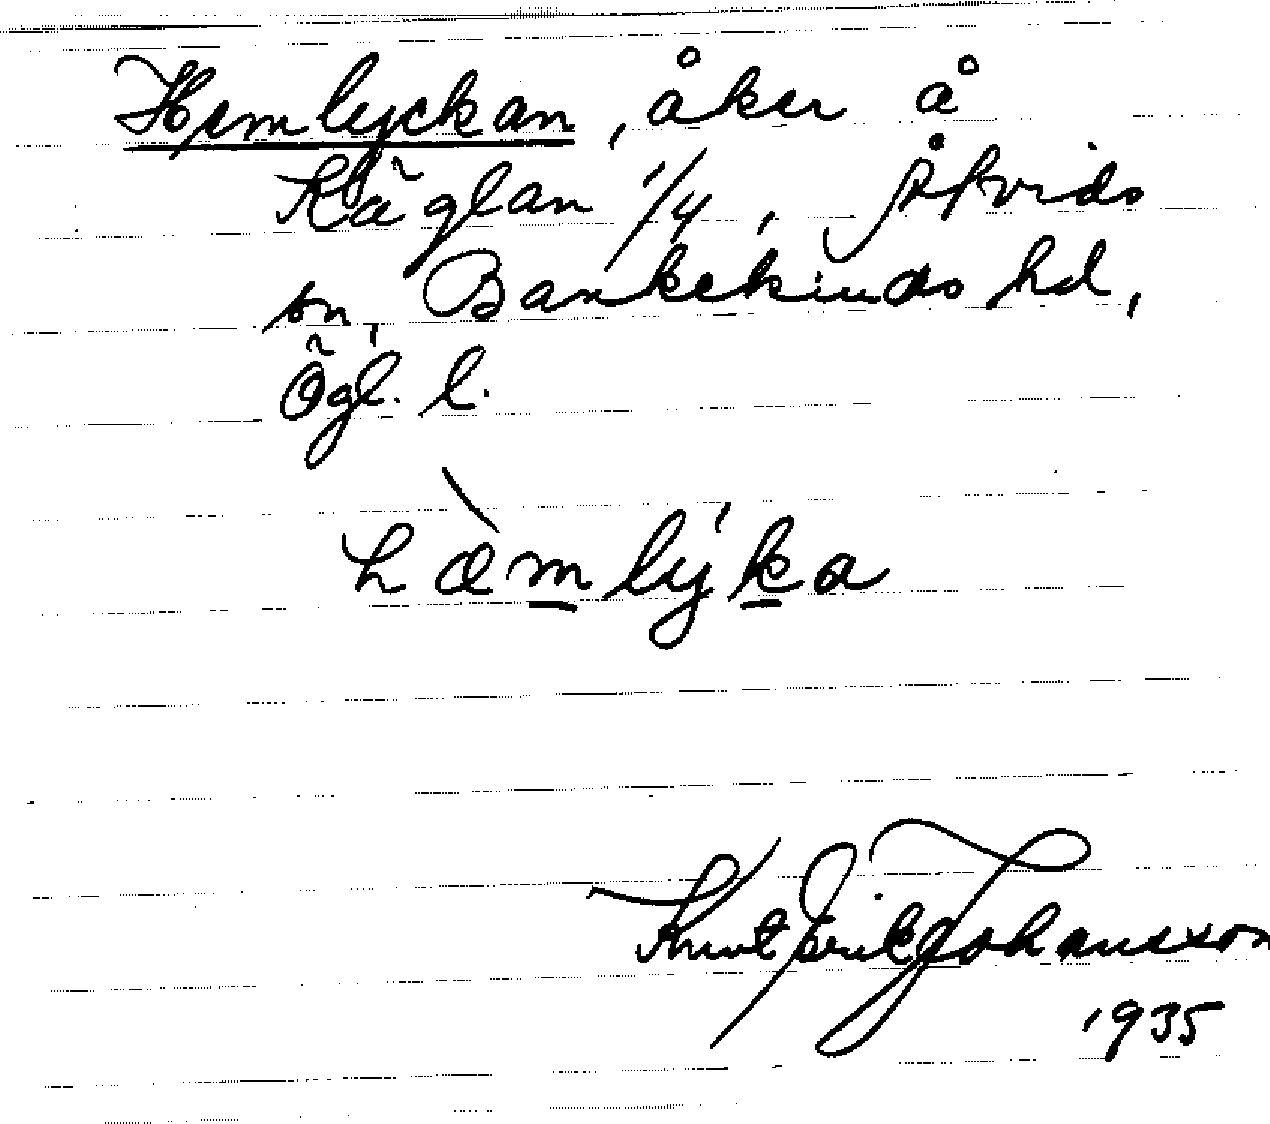 Hemlyckan, åker å
Käglan 1/4, Åtvids
sn, Bankekinds hd,
Ögl. l.
hæ̀mlýka
Knut Erik Johansson
1935